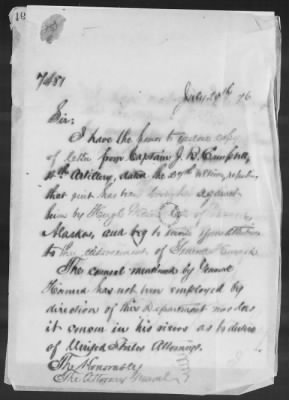 7451
July 29th 76
Sir:
I have the honor to enclose copy
of letter from Captain J. B. Campbell,
4th Artillery, dated the 27th ultimo, reporting
that suit has been brought against
him by Hugh
Alaska, and beg to invite your attention
to the endorsement of General Howard.
The counsel mentioned by General
Howard has not been employed by
direction of this Department nor does
it concur in his views as to duties
of United States Attorneys.
The Honorable
The Attorney General